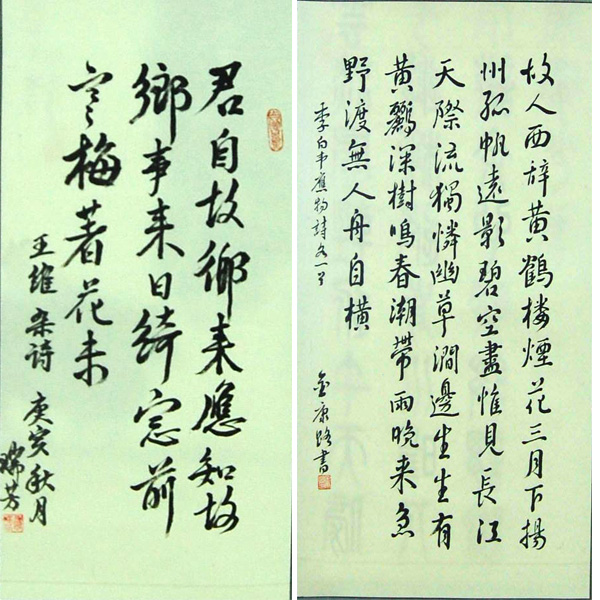 君自故鄉来應知故
鄉事来日綺窓前
寒梅著花未
王維 杂詩 庚寅秋月
瑞芳
故人西辞黄鶴楼煙花三月下揚
州孤帆遠影碧空盡惟見長江
天際流獨憐幽草澗邊生生有
黄鸝深樹鳴春潮帶雨晚来急
野渡無人舟自横
李白韦應物詩各一首
金康路書